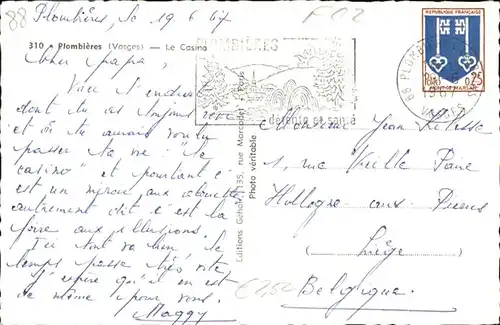 88
Plombières, le 19 6 67
F02
310 - Plombières (Vosges) - Le Casino
Cher papa,
Voici l'endroit
dont tu as toujours
et où tu aurais voulu
passer ta vie: "le
casino" et pourtant c'
est un miroir aux alouettes
autrement dit c'est la
foire aux illusions.
Ici tout va bien le
temps passe très vite
J'espère qu'il en est
de même pour vous.
Maggy
PLOMBIÈRES
détente et santé
RÉPUBLIQUE FRANÇAISE
0,25
MONT-DE-MARSAN
88 PLOMBIÈRES
1967
VOSGES
Editions Gehol, 135, rue Marcadet - Paris
Photo véritable
Monsieur Jean
1, rue Vieille
Hollogne aux Pierres
Liège
Belgique.
€2,50